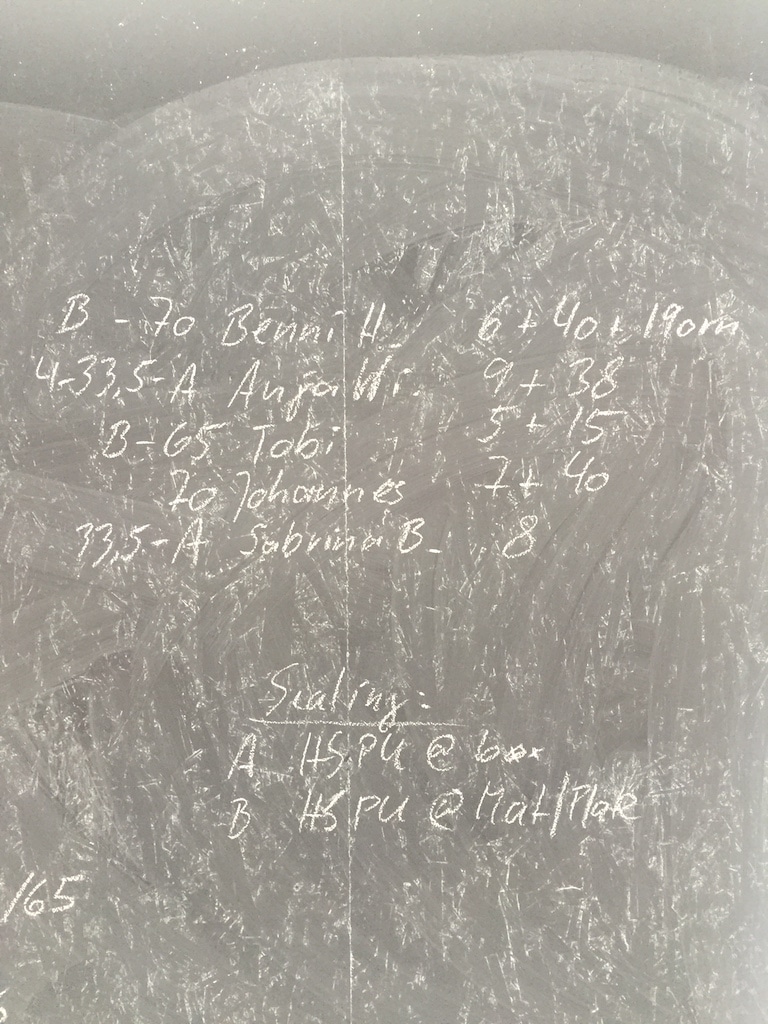 B - 70 Benni H. 6 + 40 + 190m
4-33,5-A Anja Wi. 9 + 38
B-65 Tobi 5 + 15
70 Johannes 7 + 40
33,5-A Sabrina B. 8
Scaling:
A HSPU @ box
B HSPU @ Mat/Plate
/65